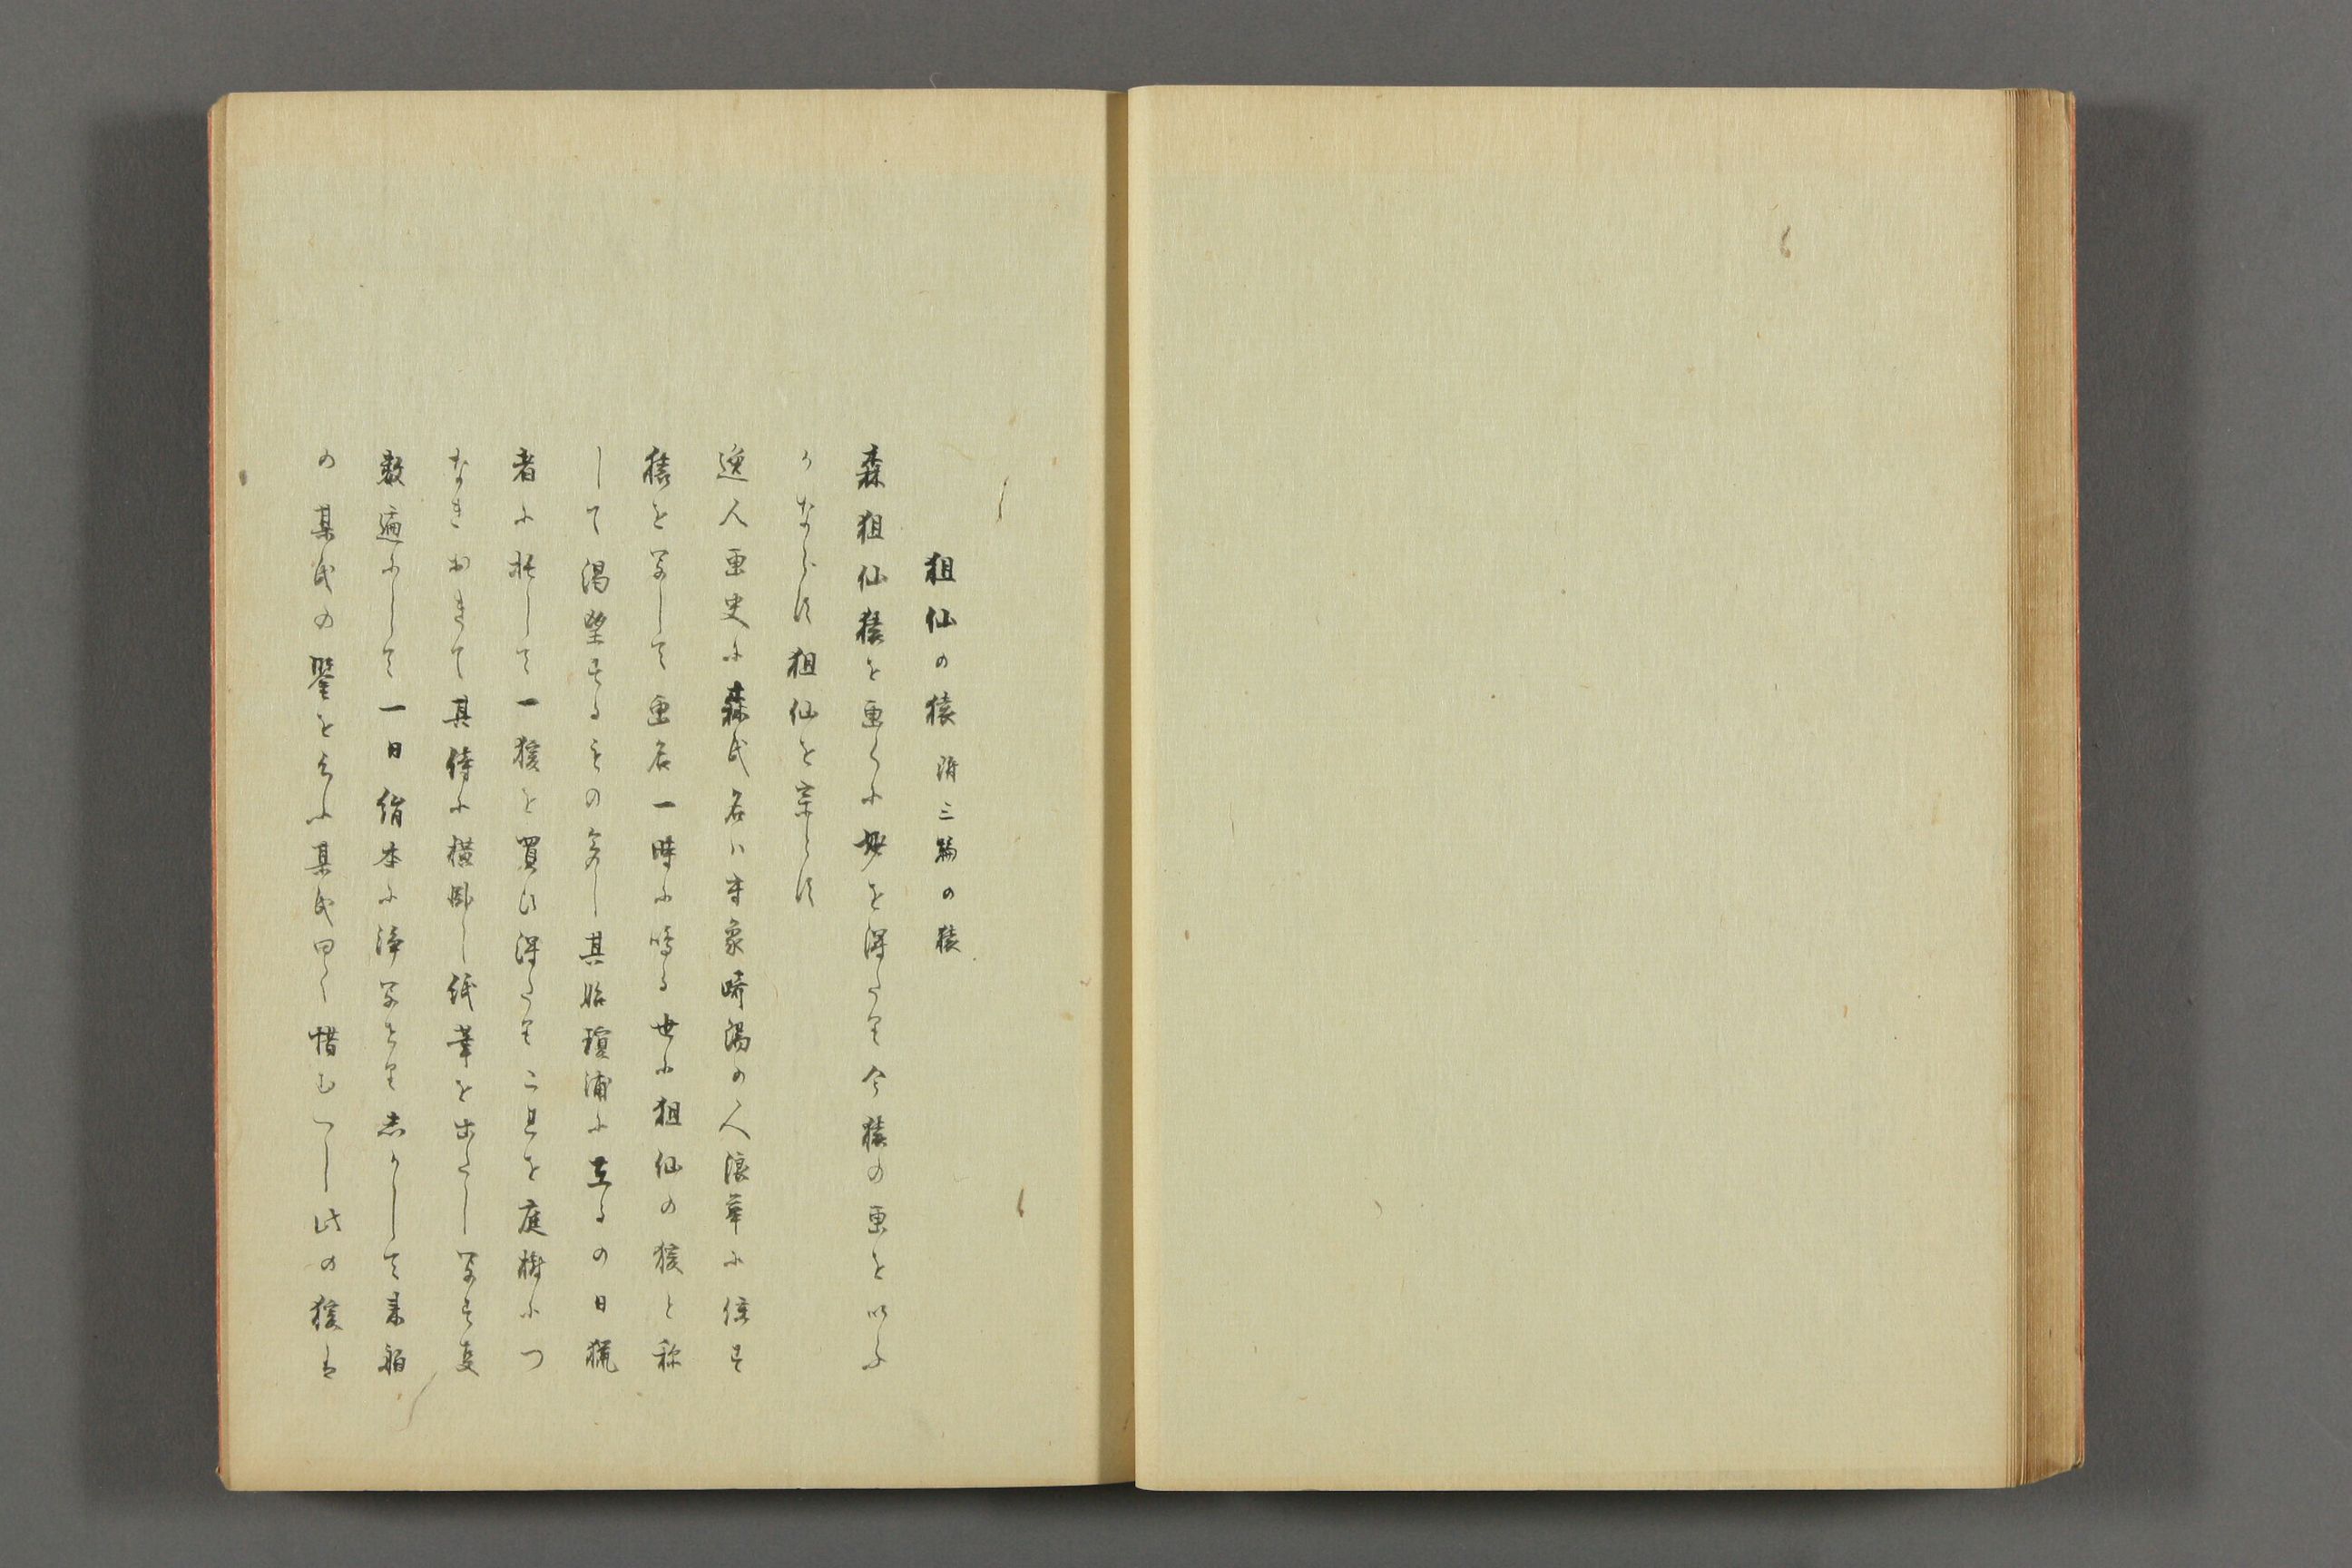 狙仙の猿 附三編の猿
森狙仙猿を画くに妙を得たり今猿の画を以ふ
かならす狙仙を宗とす
逸人画史に森氏名ハ守象崎陽の人浪華に住す
猿を写して画名一時に鳴る世に狙仙の猴と称
して渇望するもの多し其始瓊浦に在るの日猟
者に托して一猴を買ひ得たり二且を庭樹につ
なきおきて其傍に横臥し紙筆を出たし写す支
数遍にして一日絹本に浄写せりしかして来舶
の某氏の鑒を乞ふ某氏曰く惜むへし此の猴は